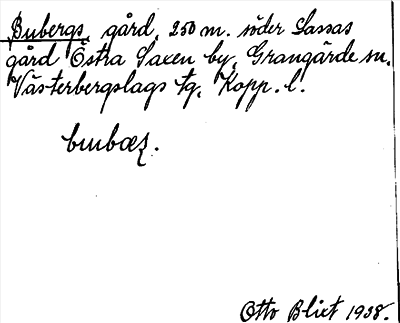 Bubergs, gård, 250 m. söder Lassas
gård Östra Saxen by, Grangärde sn.
Västerbergslags tg, Kopp. l.
Otto Blixt 1938.